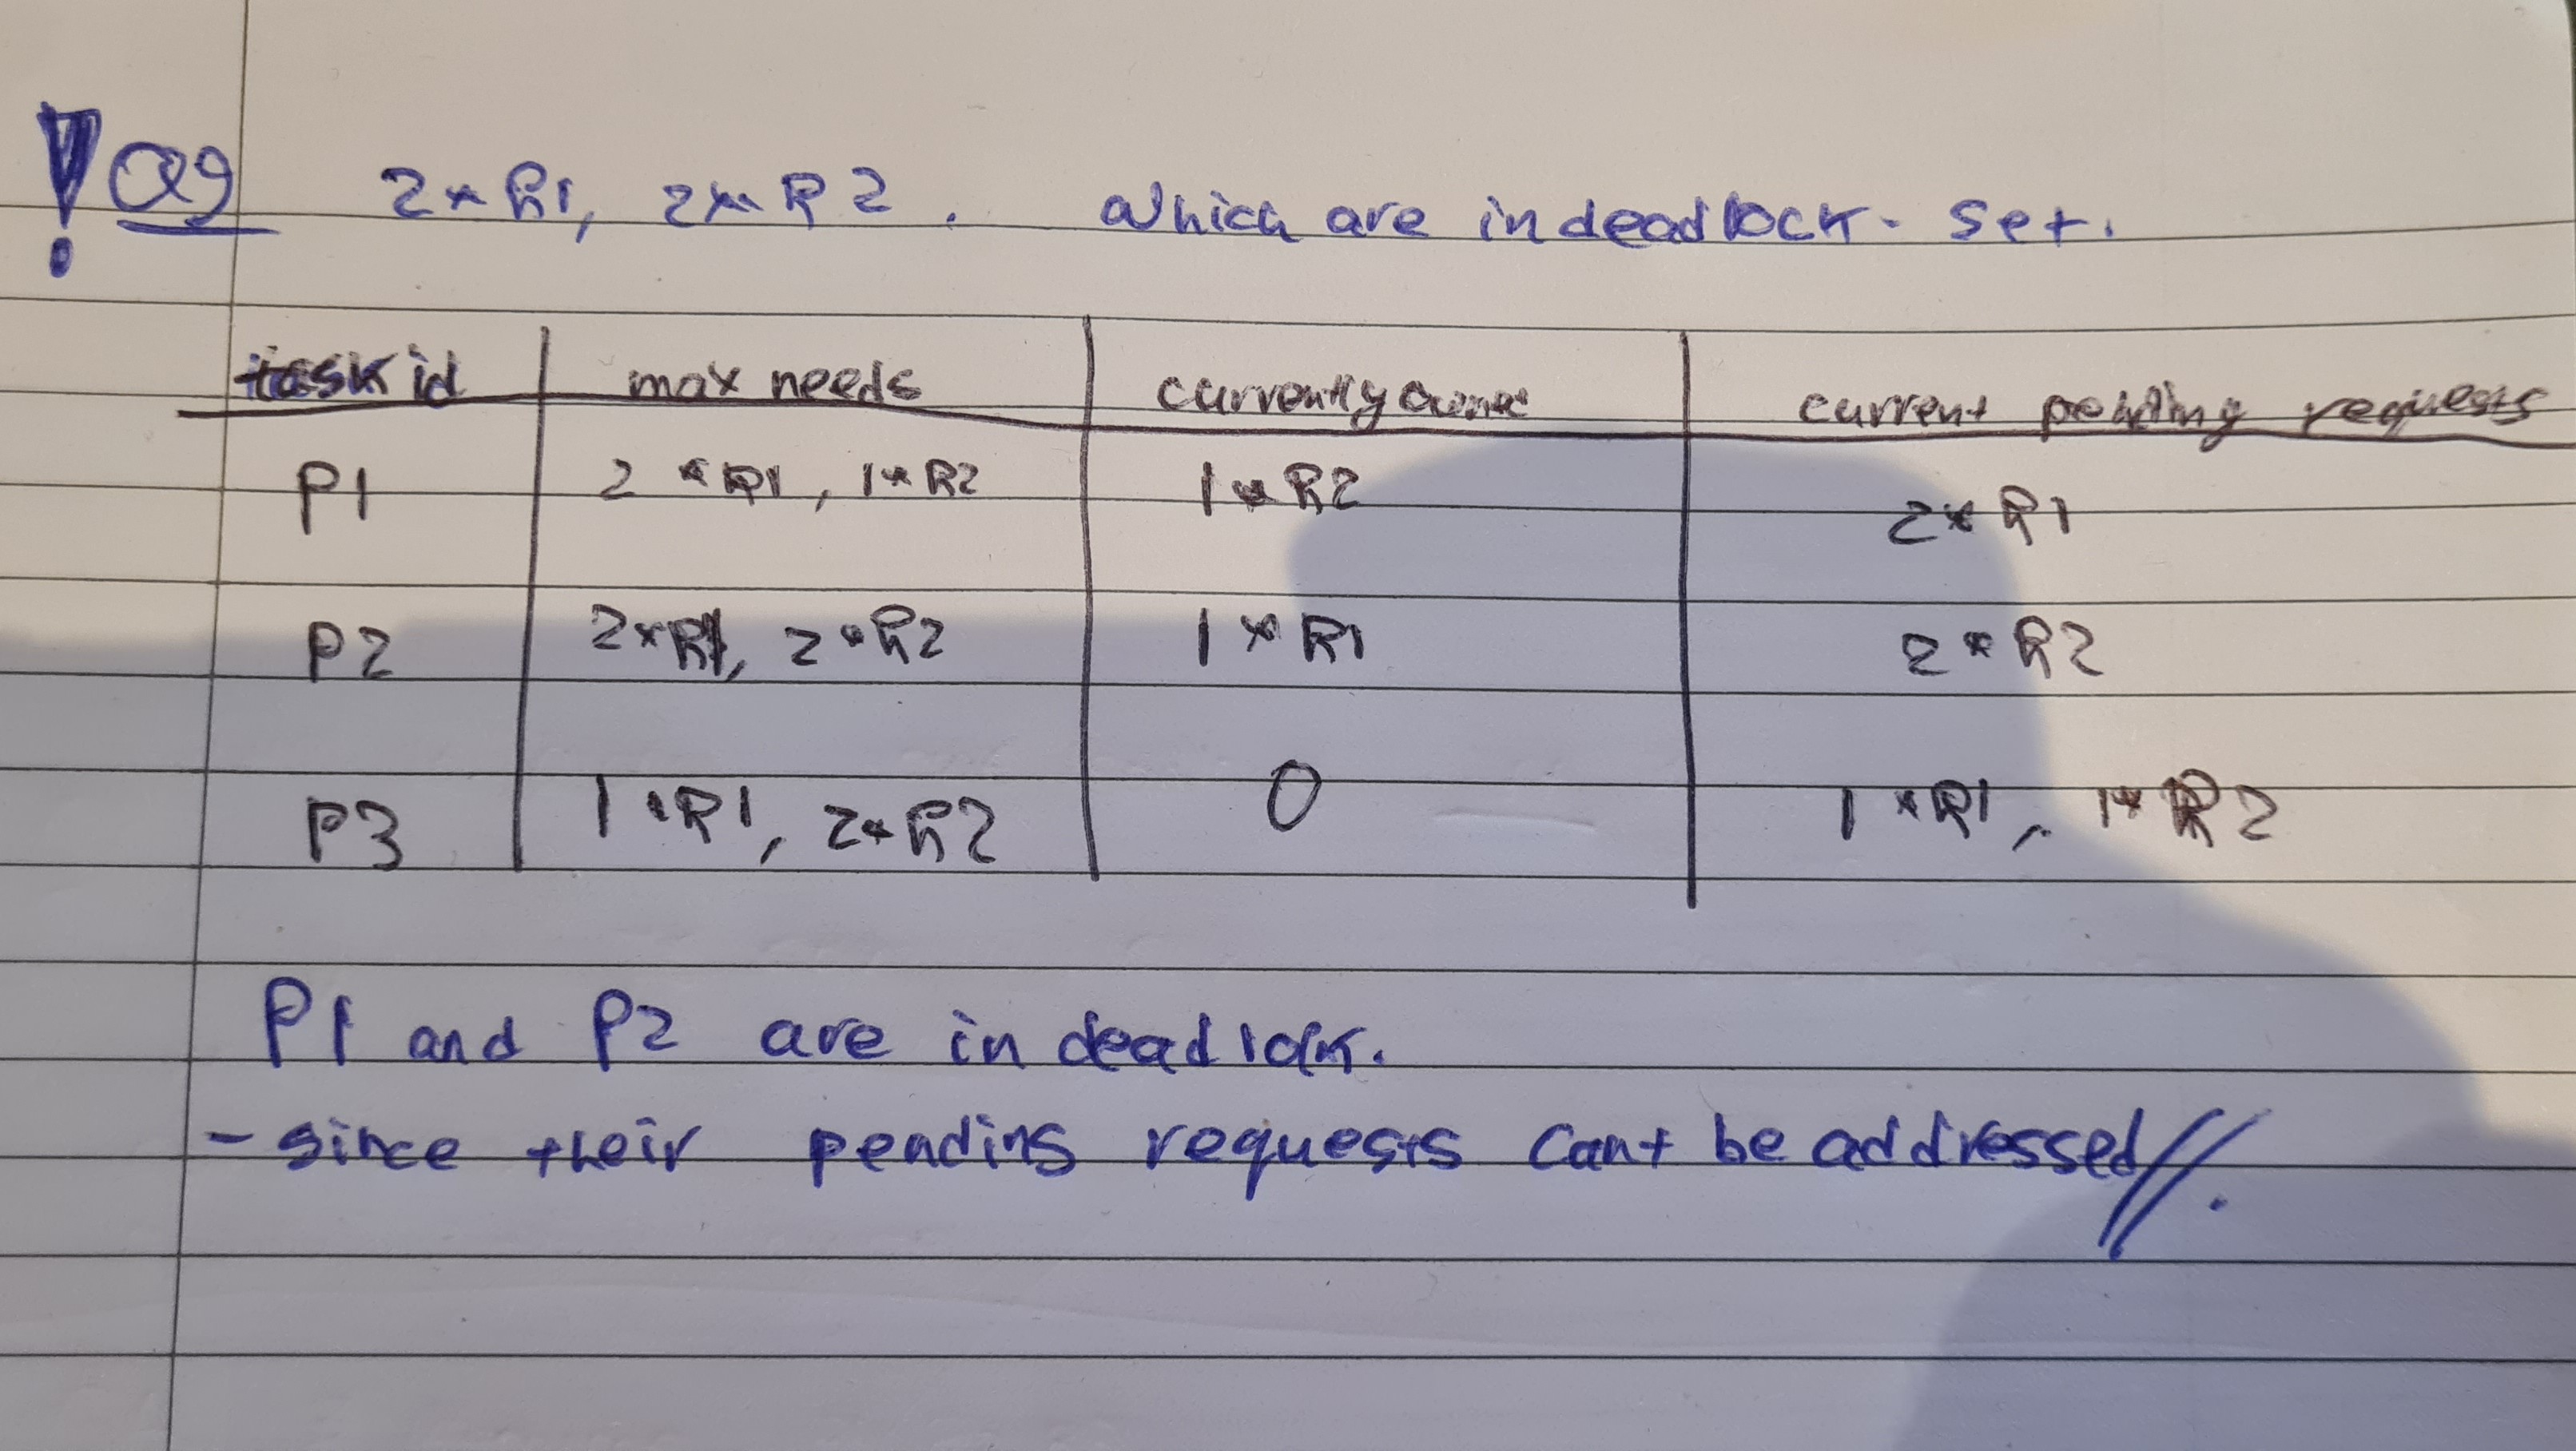 ! Q9 2*R1, 2*R2. Which are in deadlock-set.
task id max needs currently owned current pending requests
P1 2*R1, 1*R2 1*R2 2*R1
P2 2*R1, 2*R2 1*R1 2*R2
P3 1*R1, 2*R2 0 1*R1, 1*R2
P1 and P2 are in deadlock.
- since their pending requests cant be addressed//.